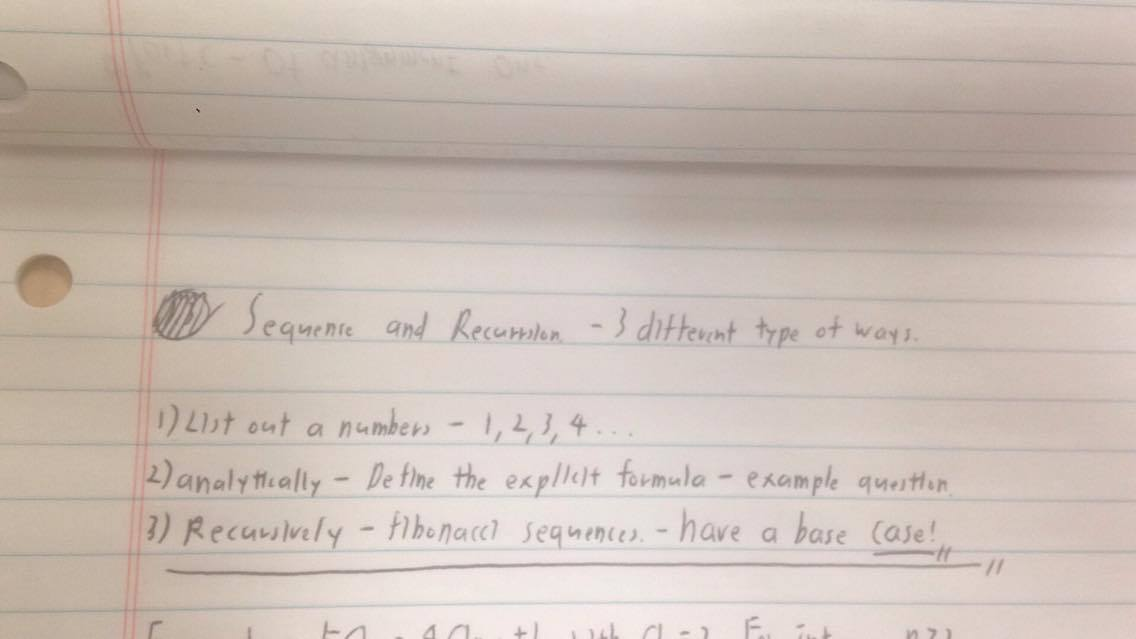 Sequence and Recursion - 3 different type of ways.
1) List out a numbers - 1, 2, 3, 4 ...
2) analytically - Define the explicit formula - example question.
3) Recursively - fibonacci sequences. - have a base case!